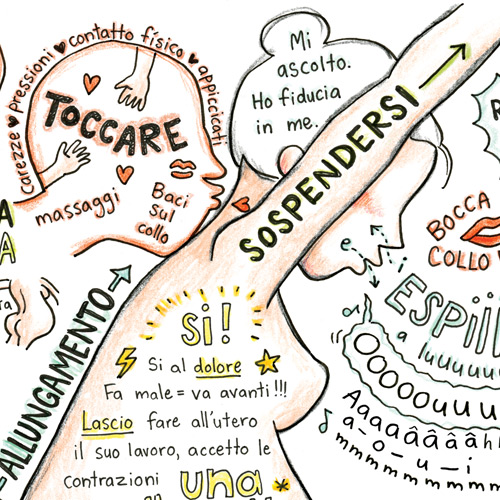 carezze ♥ pressioni ♥ contatto fisico ♥ appiccicati
TOCCARE
massaggi
Baci
sul
collo
Mi
ascolto.
Ho fiducia
in me.
SOSPENDERSI
ALLUNGAMENTO
BOCCA
COLLO
e
i
a
Sì!
Si al dolore
Fa male = va avanti!!!
Lascio fare all'utero
il suo lavoro, accetto le
contrazioni
una
OOOOOuuu
a-o-u-i